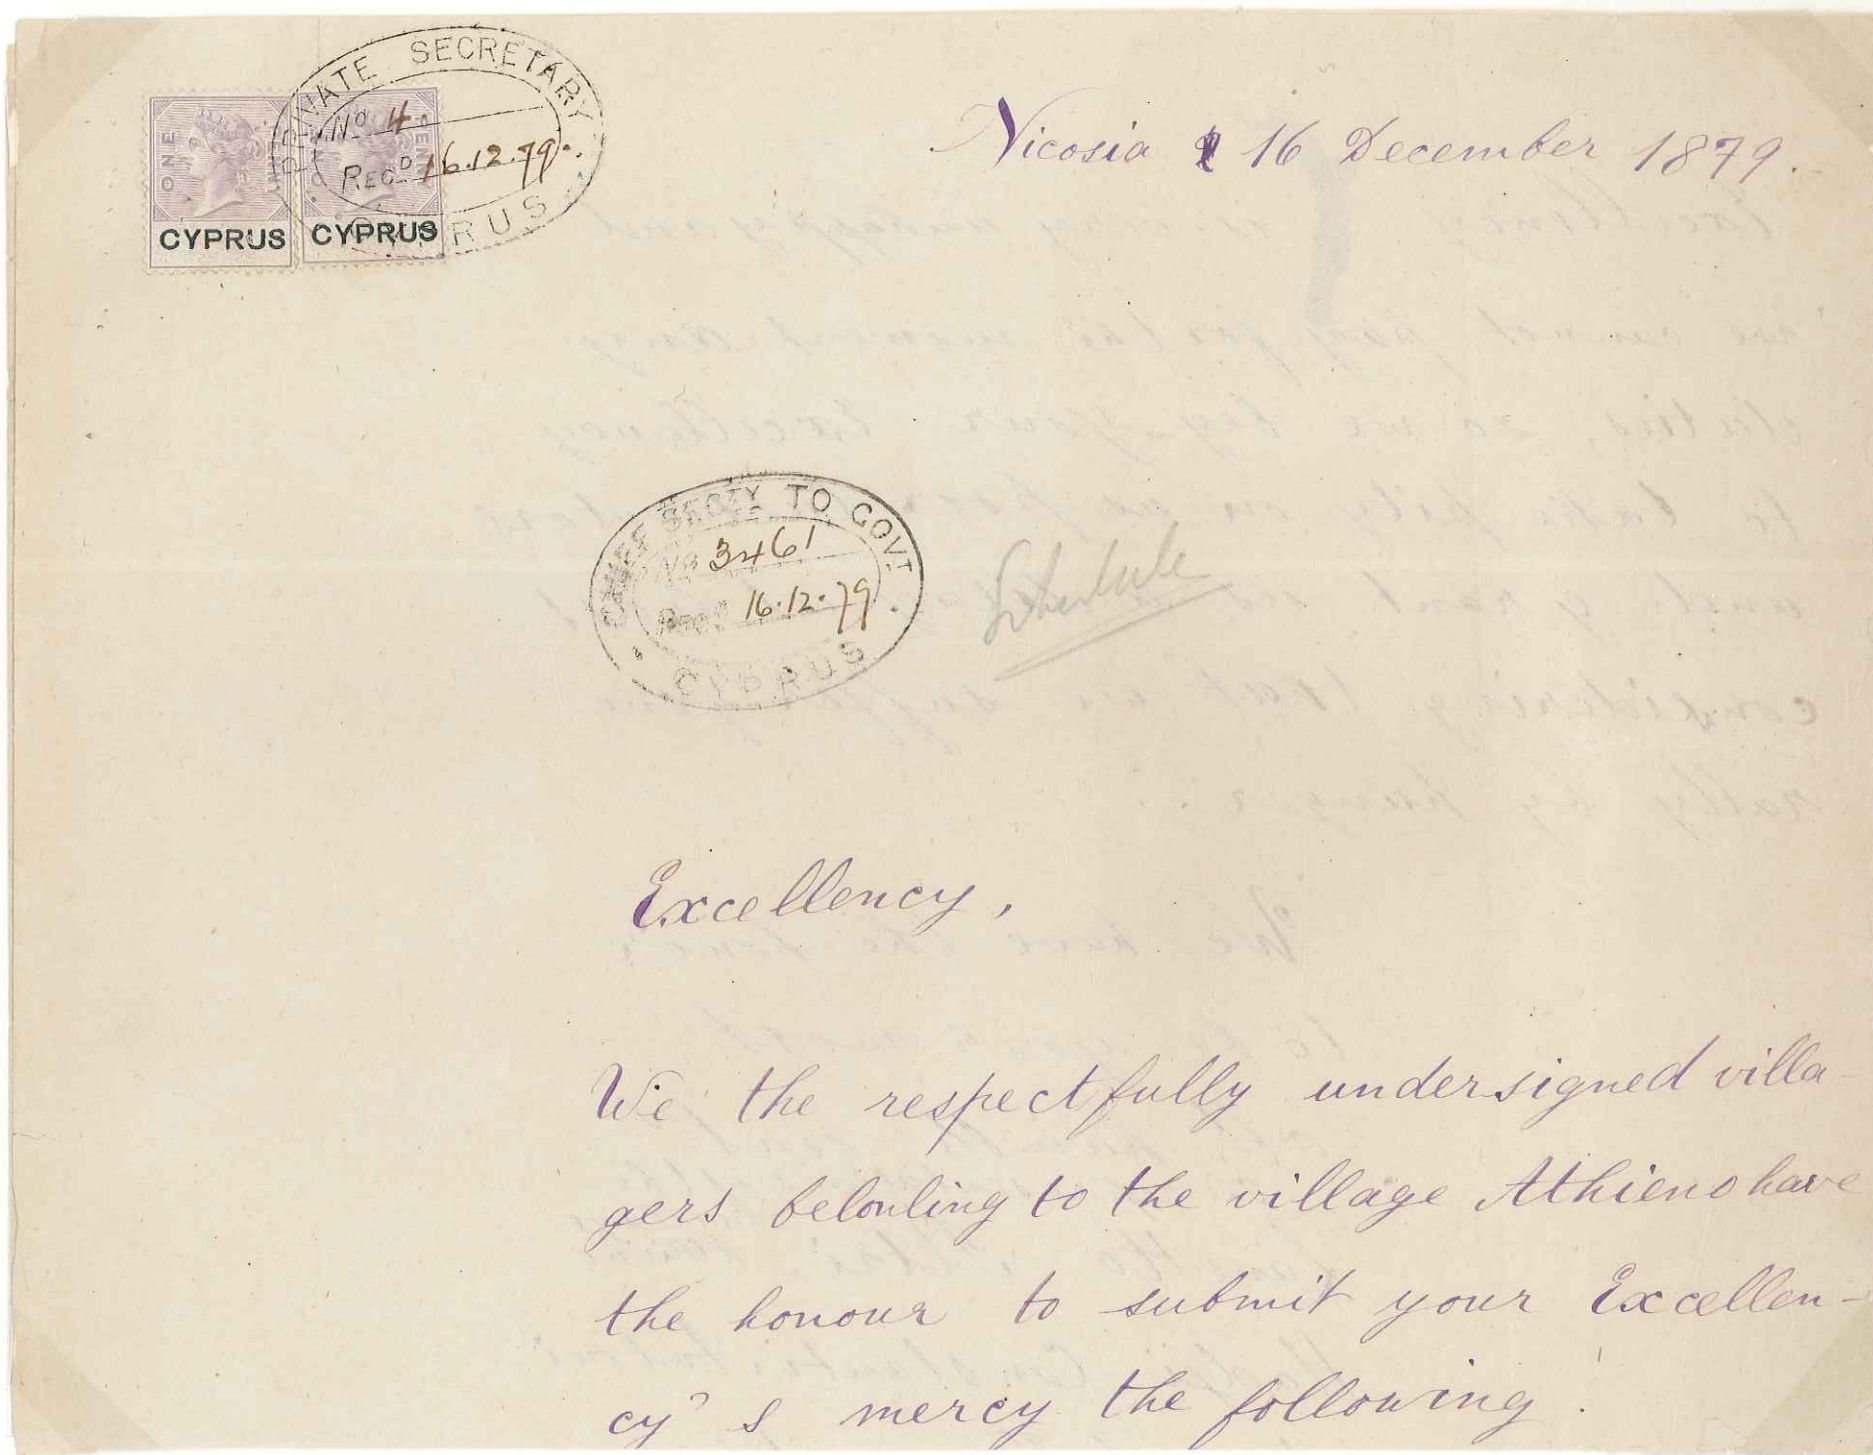 PRIVATE SECRETARY
No 4
RECD 16.12.79.
CYPRUS
ONE PENNY
CYPRUS
ONE PENNY
CYPRUS
Nicosia 16 December 1879.
CHIEF SECTY TO GOVT
No 3461
Recd 16.12.79
CYPRUS
Schedule
Excellency,
We the respectfully undersigned villa-
gers belonling to the village Athieno have
the honour to submit your Excellen-
cy's mercy the following.